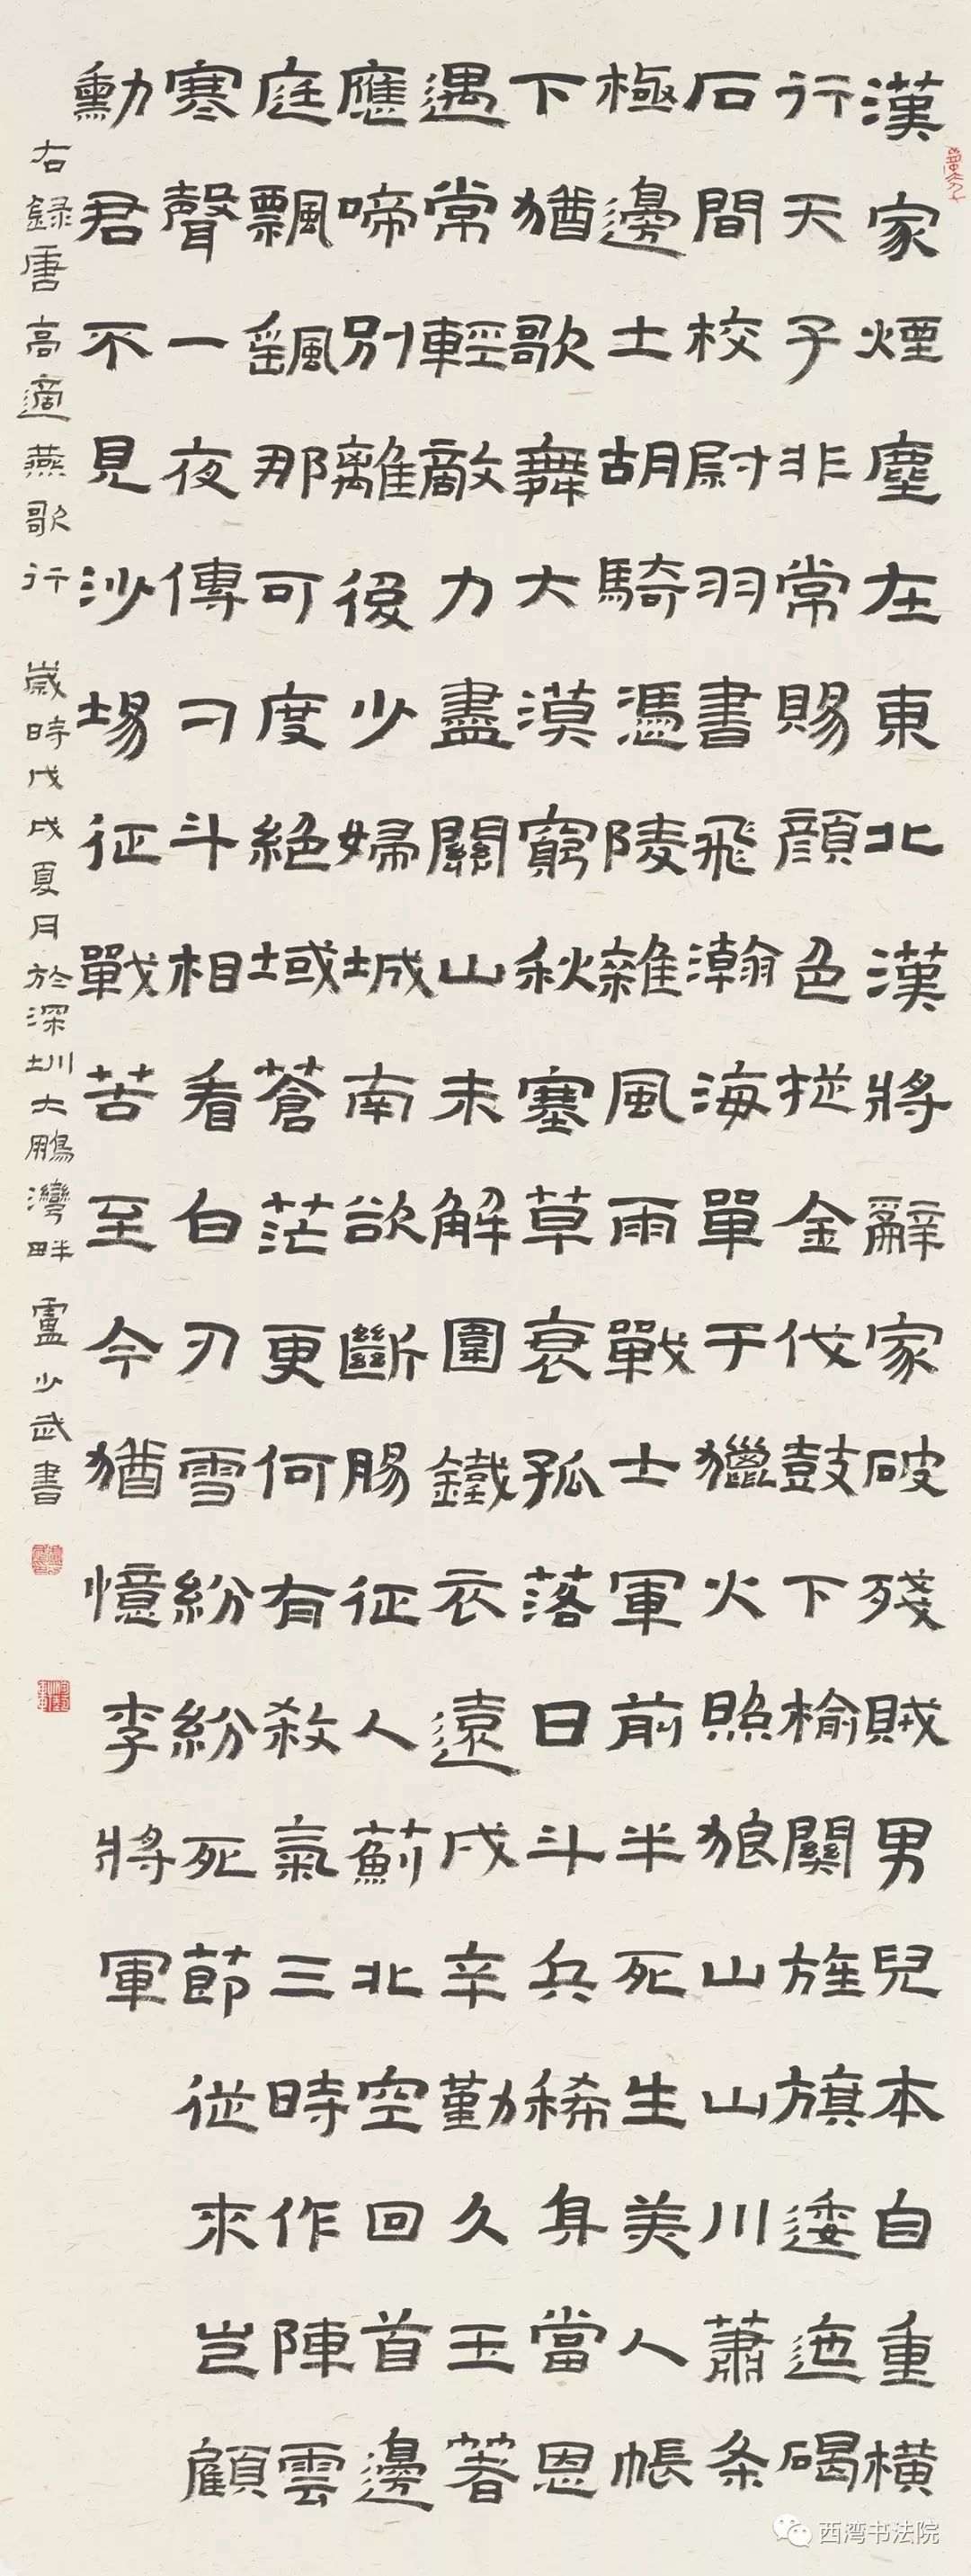 漢家煙塵在東北漢將辭家破殘賊男兒本自重橫
行天子非常賜顏色摐金伐鼓下榆關旌旗逶迤碣
石間校尉羽書飛瀚海單于獵火照狼山山川蕭条
極邊土胡騎憑陵雜風雨戰士軍前半死生美人帳
下猶歌舞大漠窮秋塞草衰孤落日斗兵稀身當恩
遇常輕敵力盡關山未解圍鐵衣遠戍辛勤久玉箸
應啼別離後少婦城南欲斷腸征人薊北空回首邊
庭飄颻那可度絕域蒼茫更何有殺氣三時作陣雲
寒聲一夜傳刁斗相看白刃雪紛紛死節從來豈顧
勳君不見沙場征戰苦至今猶憶李將軍
右録唐高適燕歌行 歲時戊戌夏月於深圳大鵬灣畔 盧少武書
西湾书法院